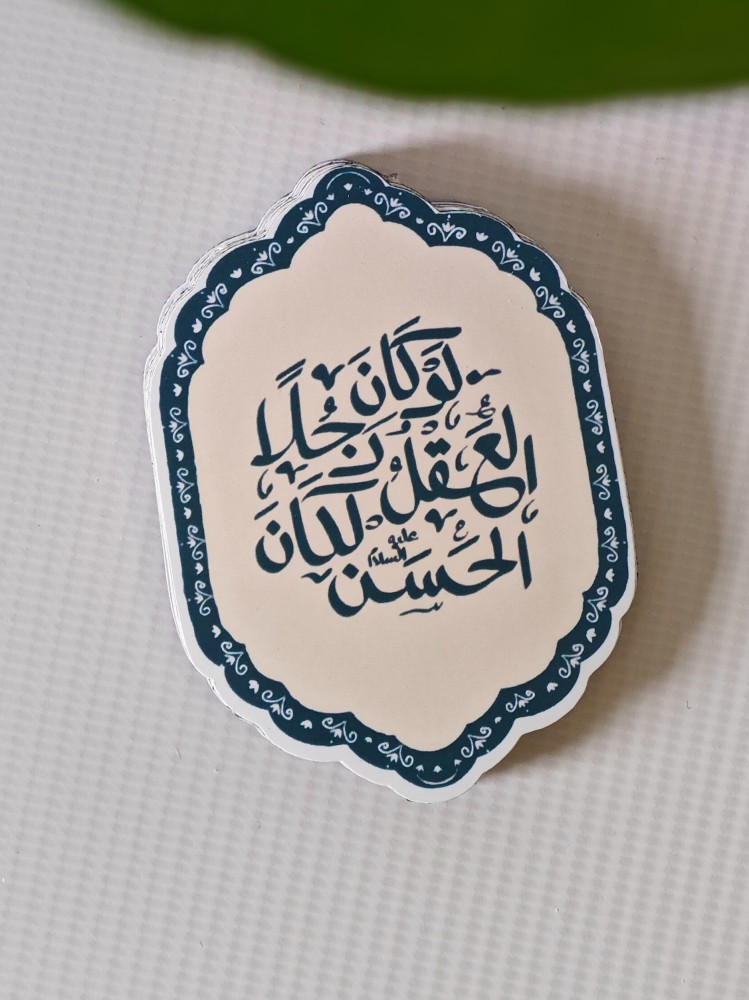 لَوْ كَانَ
العَقْلُ رَجُلًا
لَكَانَ
الحَسَن عليه السلام